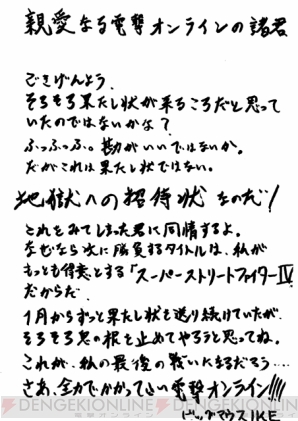 親愛なる電撃オンラインの諸君
ごきげんよう。
そろそろ果たし状が来るころだと思って
いたのではないかな？
ふっふっふ。勘がいいではないか。
だがこれは果たし状ではない。
地獄への招待状なのだ！
これをみてしまった君に同情するよ。
なぜなら次に勝負するタイトルは、私が
もっとも得意とする「スーパーストリートファイターⅣ」
だからだ。
1月からずっと果たし状を送り続けていたが、
そろそろ息の根を止めてやろうと思ってね。
これが、私の最後の戦いになるだろう…
さあ、全力でかかってこい電撃オンライン!!!!
ビッグマウスIKE
©DENGEKIONLINE
©DENGEKIONLINE